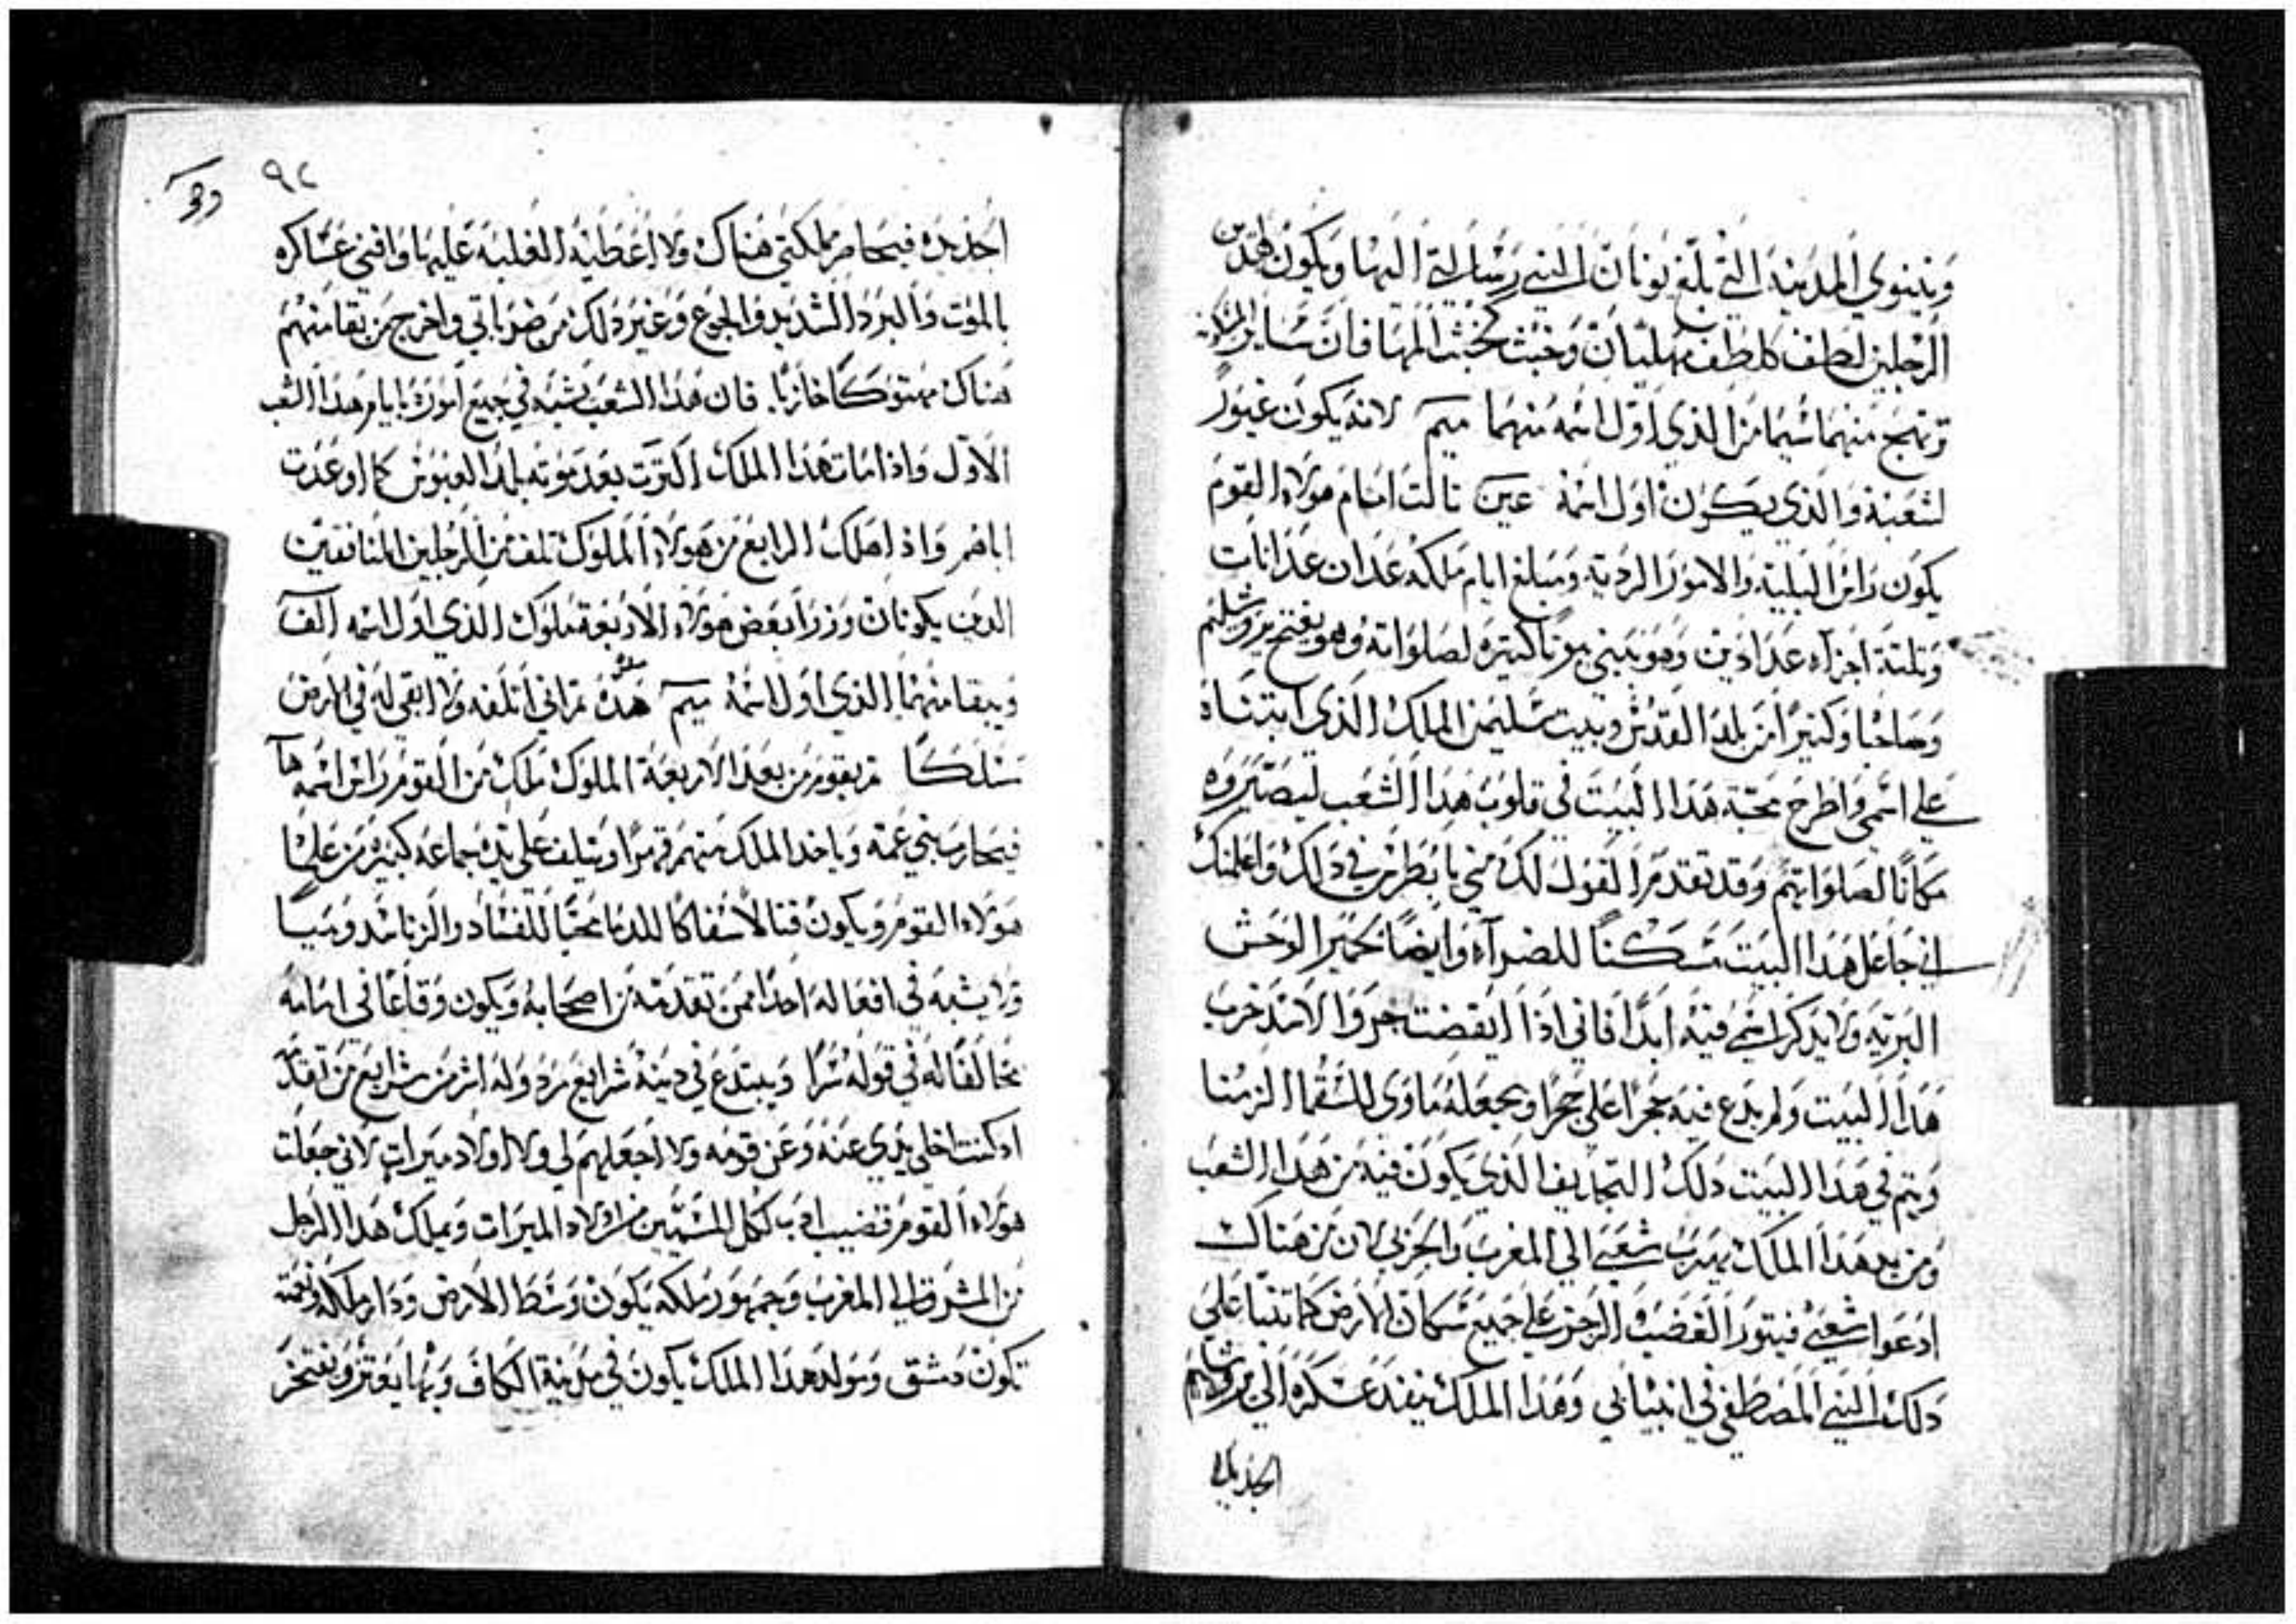 ونينوي المدينه التي بلغ يونان النبي رسالتي اليها ويكون لهدين
الرجلين لطف كلطف وخبث كخبث المها فان ساير
وتهيج منهما سيما من الذي اول اسمه منهما ميم لانه يكون غيور
لشعبه والذي يكون اول اسمه عين تالت امام هولاء القوم
يكون راس البلية والامور الردية ومبلغ ايام ملكه عدان عدانات
وتلتة اجزاء عدادين وهو يبني بيوتا كتيره لصلواته وهو يفتح يروشليم
وصاحبا وكتيرا من بلد القدس وبيت سليمن الملك الذي ابتناه
علي اسمي واطرح محبة هذا البيت في قلوب هدا الشعب ليصيروه
مكانا لصلواتهم وقد تقدم القول لك مني يا بطرس في دالك واعلمتك
اني جاعل هدا البيت مسكنا للضرآء وايضا لحمير الوحش
البريه ولا يدكر اسمي فيه ابدا فاني اذا ايقضت جرو الاسد خرب
هدا البيت ولم يدع فيه حجرا علي حجرا ويجعله ماوي للسقما الزمنا
ويتم في هدا البيت دلك التجديف الذي يكون فيه من هدا الشعب
ومن يد هدا الملك يهرب شعبي الي المغرب والجزيرة لان من هناك
ادعوا شعبي فيتور الغضب الرجز علي جميع سكان الارض كما تنبا علي
دلك النبي المصطفي في انبيائي وهدا الملك ينفد عسكره الي يروشليم
الجديده
٩٢
اجديده فيحاصر مملكتي هناك ولا اعطيه الغلبه عليها وافني عساكره
بالموت والبرد الشديد والجوع وغير دلك من ضرباتي واخرج من بقا منهم
هناك مهتوكا خازيا فان هدا الشعب يشبه في جميع اموره بايام هدا الشعب
الاول واذا مات هدا الملك اكترت بعد موته بلد العبوس كما اوعدت
اباهم واذا هلك الرابع من هولاء الملوك تلف من الرجلين المنافقين
الدين يكونان وزرا بعض هولاء الاربعة ملوك الذي اول اسمه الف
ويبقا منهما الذي اول اسمه ميم هده ثم اني اتلفه ولا ابقي له في الارض
نسلا ثم يقوم من بعد الاربعة الملوك ملك من القوم راس اسمه هآ
فيحارب بني عمه وياخد الملك منهم قهرا ويتلف علي يده جماعه كبيره من علما
هولاء القوم ويكون قتالا سفاكا للدما محبا للفساد والزنا
ولا يشبه في افعاله احدا ممن تقدمه من اصحابه ويكون وقاعا في امامه
مخالفا له في قوله سرا ويبتدع في دينه شرايع ردوله اشر من شرايع من تقدم
اد كنت اخلي يدي عنه وعن قومه ولا اجعلهم لي ولا اولاد ميرات لاني جعلت
هولاء القوم قضيب ادب لكل المسميين من اولاد الميرات ويملك هدا الرجل
من المشرق الي المغرب وجمهور ملكه يكون وسط الارض ودار ملكه ونعمته
تكون دمشق ومولد هدا الملك يكون في مدينة الكاف وبها يعتز ويفتخر